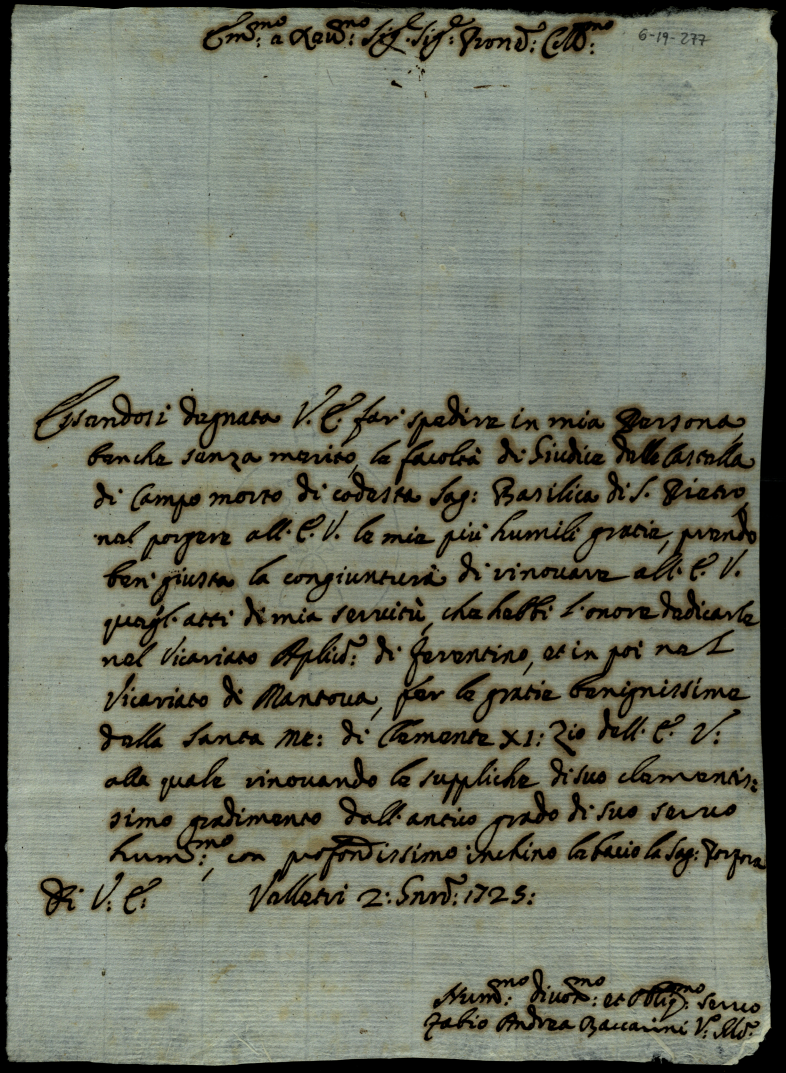 Em:mo e Rev:mo Sig:r Sig:r Pron: Col:mo
6-19-277
Essendosi degnata V. E. far spedire in mia Persona,
benche senza merito, le facoltà di Giudice delle Castella
di Campo morto di codesta Sag: Basilica di S. Pietro,
nel porgere all' E. V. le mie più humili gratie, prendo
ben' giusta la congiuntura di rinovare all' E. V.
quegl' atti di mia servitù, che hebbi l' onore dedicarle
nel Vicariato Aplico: di Ferentino, et in poi nel
Vicariato di Mantova, per le gratie benignissime
della Santa Me: di Clemente XI: Zio dell' E. V:
alla quale rinovando le suppliche di suo clementis:
simo gradimento dell' antico grado di suo servo
hum:mo, con profondissimo inchino le bacio la Sag: Porpora
Di V: E. Velletri 2: Gnro: 1725:
Hum:mo divot:mo et Oblig:mo servo
Fabio Andrea Baccarini